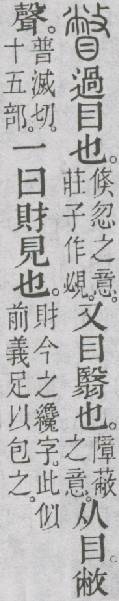 瞥過目也。倏忽之意。莊子作覕。又目翳也。障蔽之意。从目。敝
聲。普滅切。十五部。一曰財見也。財今之纔字。此似前義足以包之。